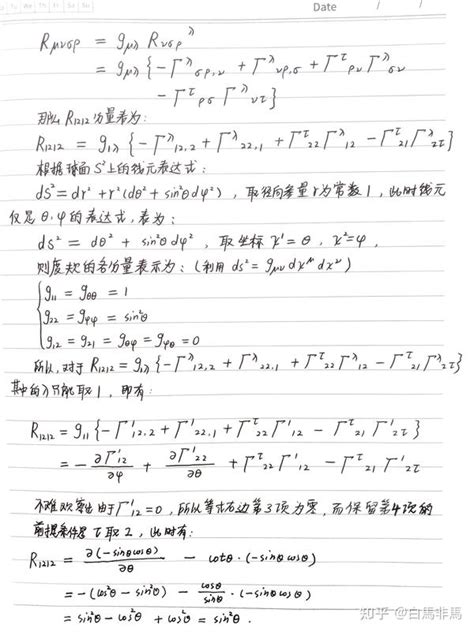 Date
R_{μνσρ} = g_{μλ} R_{νσρ}^λ
= g_{μλ} {-Γ^λ_{σρ,ν} + Γ^λ_{νρ,σ} + Γ^τ_{ρν} Γ^λ_{σν}
- Γ^τ_{ρσ} Γ^λ_{ντ}}
那么 R₁₂₁₂ 分量表为:
R₁₂₁₂ = g_{1λ} {-Γ^λ_{12,2} + Γ^λ_{22,1} + Γ^τ_{22} Γ^λ_{12} - Γ^τ_{21} Γ^λ_{2τ}}
根据球面 S² 上的线元表达式:
ds² = dr² + r²(dθ² + sin²θdφ²), 取径向参量 r 为常数 1, 此时线元
仅是 θ.φ 的表达式, 表为:
ds² = dθ² + sin²θdφ², 取坐标 x¹ = θ, x² = φ,
则度规的各分量表示为: (利用 ds² = g_{μν} dx^μ dx^ν)
g₁₁ = g_{θθ} = 1
g₂₂ = g_{φφ} = sin²θ
g₁₂ = g₂₁ = g_{θφ} = g_{φθ} = 0
所以, 对于 R₁₂₁₂ = g_{1λ} {-Γ^λ_{12,2} + Γ^λ_{22,1} + Γ^τ_{22} Γ^λ_{12} - Γ^τ_{21} Γ^λ_{2τ}}
其中的 λ 只能取 1, 即有:
R₁₂₁₂ = g₁₁ {-Γ¹_{12,2} + Γ¹_{22,1} + Γ^τ_{22} Γ¹_{12} - Γ^τ_{21} Γ¹_{2τ}}
= -∂Γ¹₁₂/∂φ + ∂Γ¹₂₂/∂θ + Γ^τ_{22} Γ¹_{12} - Γ^τ_{21} Γ¹_{2τ}
不难观察出由于 Γ¹₁₂ = 0, 所以等式右边第3项为零, 而保留第4项的
前提条件是 τ 取 2, 此时有:
R₁₂₁₂ = ∂(-sinθcosθ)/∂θ - cotθ·(-sinθcosθ)
= -(cos²θ - sin²θ) - cosθ/sinθ·(-sinθcosθ)
= sin²θ - cos²θ + cos²θ = sin²θ.
知乎 @白馬非馬